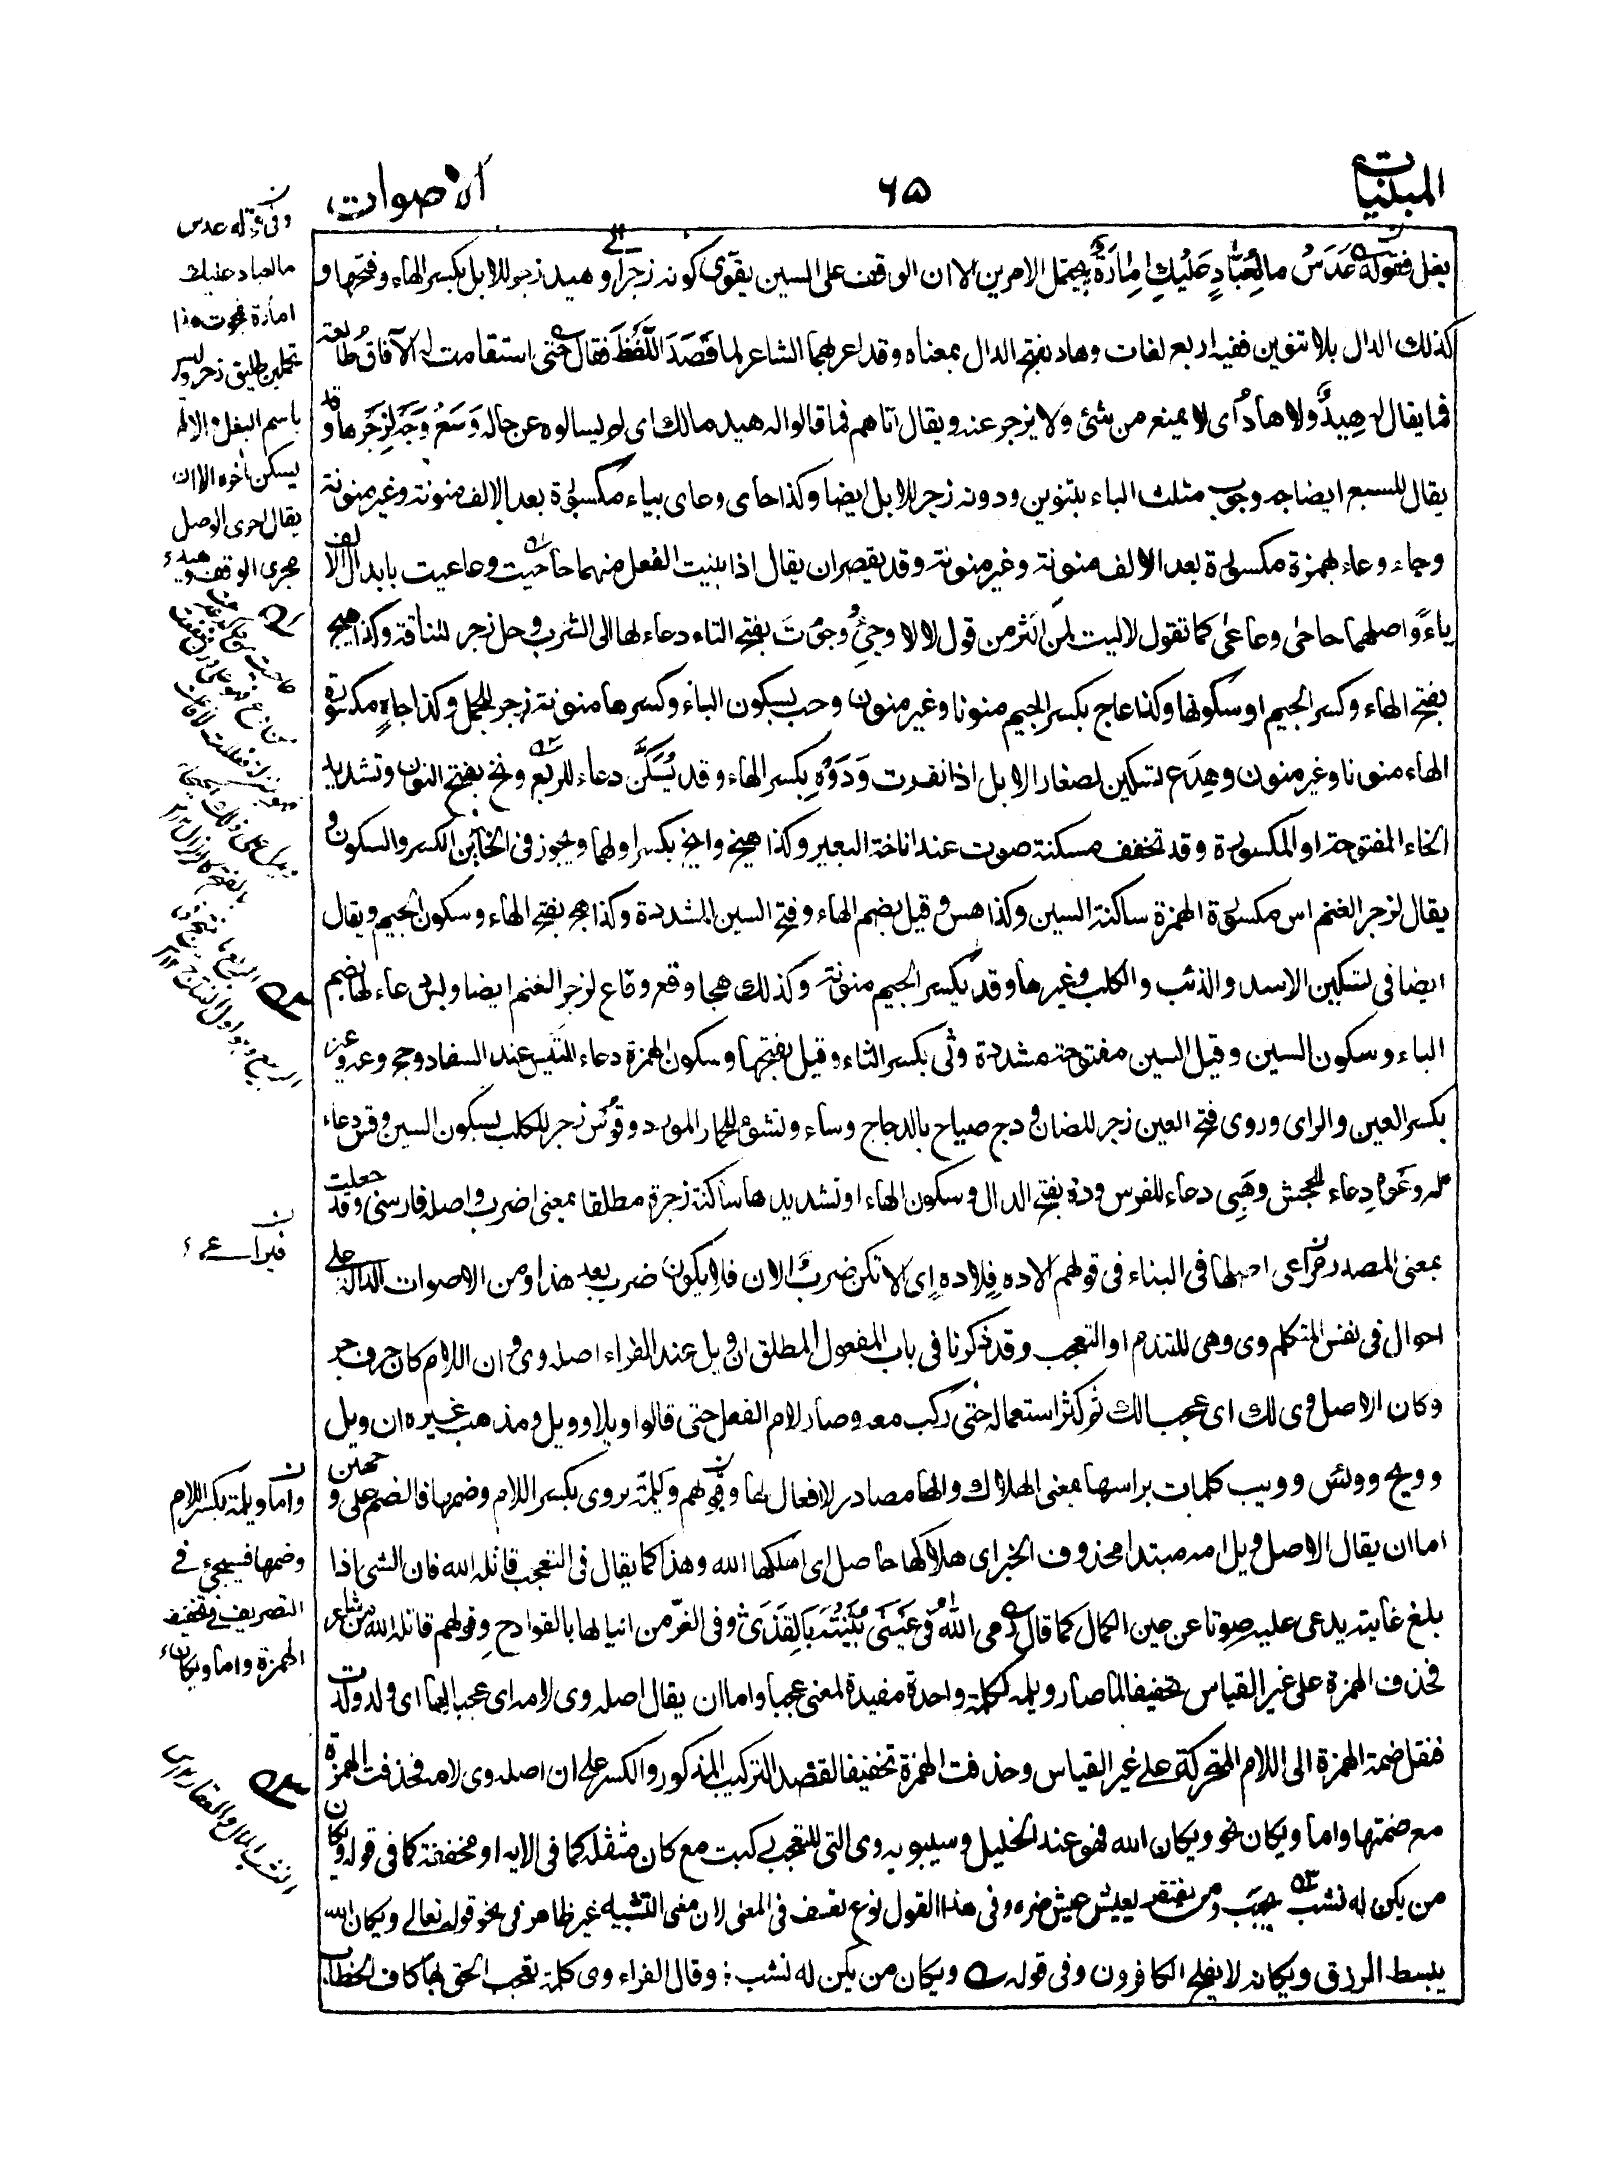 المبنيات
٦٥
الاصوات
بغل فقوله عَدَسْ مالِعَبَّادٍ عَلَيْكِ اِمَارَةٌ يحتمل الامرين الا ان الوقف على السين يقوى كونه زجرا وهيد زجر للابل بكسر الهاء وفتحها و
كذلك الدال بلا تنوين ففيه اربع لغات وهاد بفتح الدال بمعناه وقد اعربهما الشاعر لما قَصَدَ اللَّفْظَ فقال حتى استقامت له الآفاقُ طائعة
فما يقال له هِيدٌ ولا هادُ اى لا يمنع من شئ ولا يزجر عنه ويقال اتاهم فما قالوا له هيد مالك اى لم يسالوه عن حاله وَسَعْ وَجَهْ لزجرها وقد
يقال للسبع ايضا جه وجوب مثلث الباء بتنوين ودونه زجر للابل ايضا وكذا حاى وعاى بياء مكسورة بعد الالف منونة وغير منونة
وحاء وعاء بهمزة مكسورة بعد الالف منونة وغير منونة وقد يقصران يقال اذا بنيت الفعل منهما حاحيت وعاعيت بابدال الالف
ياءً واصلهما حاحى وعاعى كما تقول لاليت لمن اكثر من قول لا لا وجئ وجوت بفتح التاء دعاء لها الى الشرب وحل زجر للناقة وكذا هيج
بفتح الهاء وكسر الجيم او سكونها وكذا عاج بكسر الجيم منونا وغير منون وحب بسكون الباء وكسرها منونة زجر للجمل وكذا جاهِ مكسورة
الهاء منونا وغير منون وهِدَع تسكين لصغار الابل اذا نفرت وَدَوْهِ بكسر الهاء وقد يُسَكَّن دعاء للربع ونخ بفتح النون وتشديد
الخاء المفتوحة او المكسورة وقد تخفف مسكنة صوت عند اناخة البعير وكذا هيخ وايخ بكسر اولهما ويجوز فى الخائين الكسر والسكون و
يقال لزجر الغنم اس مكسورة الهمزة ساكنة السين وكذا هس وقيل بضم الهاء وفتح السين المشددة وكذا هج بفتح الهاء وسكون الجيم ويقال
ايضا فى تسكين الاسد والذئب والكلب وغيرها وقد يكسر الجيم منونة وكذلك هجا وقع وقاع لزجر الغنم ايضا وبس دعاء لها بضم
الباء وسكون السين وقيل السين مفتوحة مشددة وثى بكسر الثاء وقيل بفتحها وسكون الهمزة دعاء للتيس عند السفاد وحج وعه وعيز
بكسر العين والزاى وروى فتح العين زجر للضان ودج صياح بالدجاج وساء وتشؤ للحمار المورد وقوس زجر للكلب بسكون السين وقس دعاء
له وعَوْه دعاء للجحش وهَبِى دعاء للفرس ودَه بفتح الدال وسكون الهاء او تشديدها ساكنة زجرة مطلقا بمعنى اضرب واصله فارسى وقد جعلت
بمعنى المصدر فراعى اصلها فى البناء فى قولهم الاده فلاده اى الا تكن ضربك الان فلا يكون ضرب بعد هذا ومن الاصوات الدالة على
احوال فى نفس المتكلم وى وهى للتندم او التعجب وقد ذكرنا فى باب المفعول المطلق ان ويل عند الفراء اصله وى وان اللام كان حرف جر
وكان الاصل وى لك اى عجب لك ثم كثر استعماله حتى ركب معه وصار لام الفعل حتى قالوا ويلا وويل ومذهب غيره ان ويل
وويح وويس وويب كلمات براسها بمعنى الهلاك وانها مصادر لا افعال لها وقولهم ويلمّه يروى بكسر اللام وضمها فالضم على وجهين
اما ان يقال الاصل ويل امه مبتدا محذوف الخبر اى هلاكها حاصل اى اهلكها الله وهذا كما يقال فى التعجب قاتله الله فان الشئ اذا
بلغ غايته يدعى عليه صوتا عن عين الكمال كما قال رمى الله فى عَيْنَىْ بُثَيْنَةَ بالقَذَى وفى الغرّ من انيابها بالقوادح وقولهم قاتله الله من شاعر
فحذف الهمزة على غير القياس تخفيفا لما صار ويلمه ككلمة واحدة مفيدة لمعنى عجبا واما ان يقال اصله وى لامه اى عجبا لها اى ولد ولدت
فنقل ضمة الهمزة الى اللام المتحركة على غير القياس وحذفت الهمزة تخفيفا لقصد التركيب المذكور والكسر على ان اصله وى لامه فحذفت الهمزة
مع ضمتها واما ويكان نحو ويكان الله فهو عند الخليل وسيبويه وى التى للتعجب ركبت مع كان مثقلة كما فى الاية او مخففة كما فى قوله ويكان
من يكن له نشب يحبب ومن يفتقر يعيش عيش ضر وفى هذا القول نوع تعسف فى المعنى لان معنى التشبيه غير ظاهر فى نحو قوله تعالى ويكان الله
يبسط الرزق ويكانه لا يفلح الكافرون وفى قوله ويكان من يكن له نشب : وقال الفراء وى كلمة تعجب الحق بها كاف الخطاب
وفى قوله عدس
مالعباد عليك
امارة نجوت وهذا
تحملين طليق زجر وليس
باسم البغل والا لم
يسكن آخره الا ان
يقال اجرى الوصل
مجرى الوقف وهيد
فيراعى
واما ويلمه بكسر اللام
وضمها فسيجىء فى
التصريف فى تخفيف
الهمزة واما ويكان
النشب المال والعقار